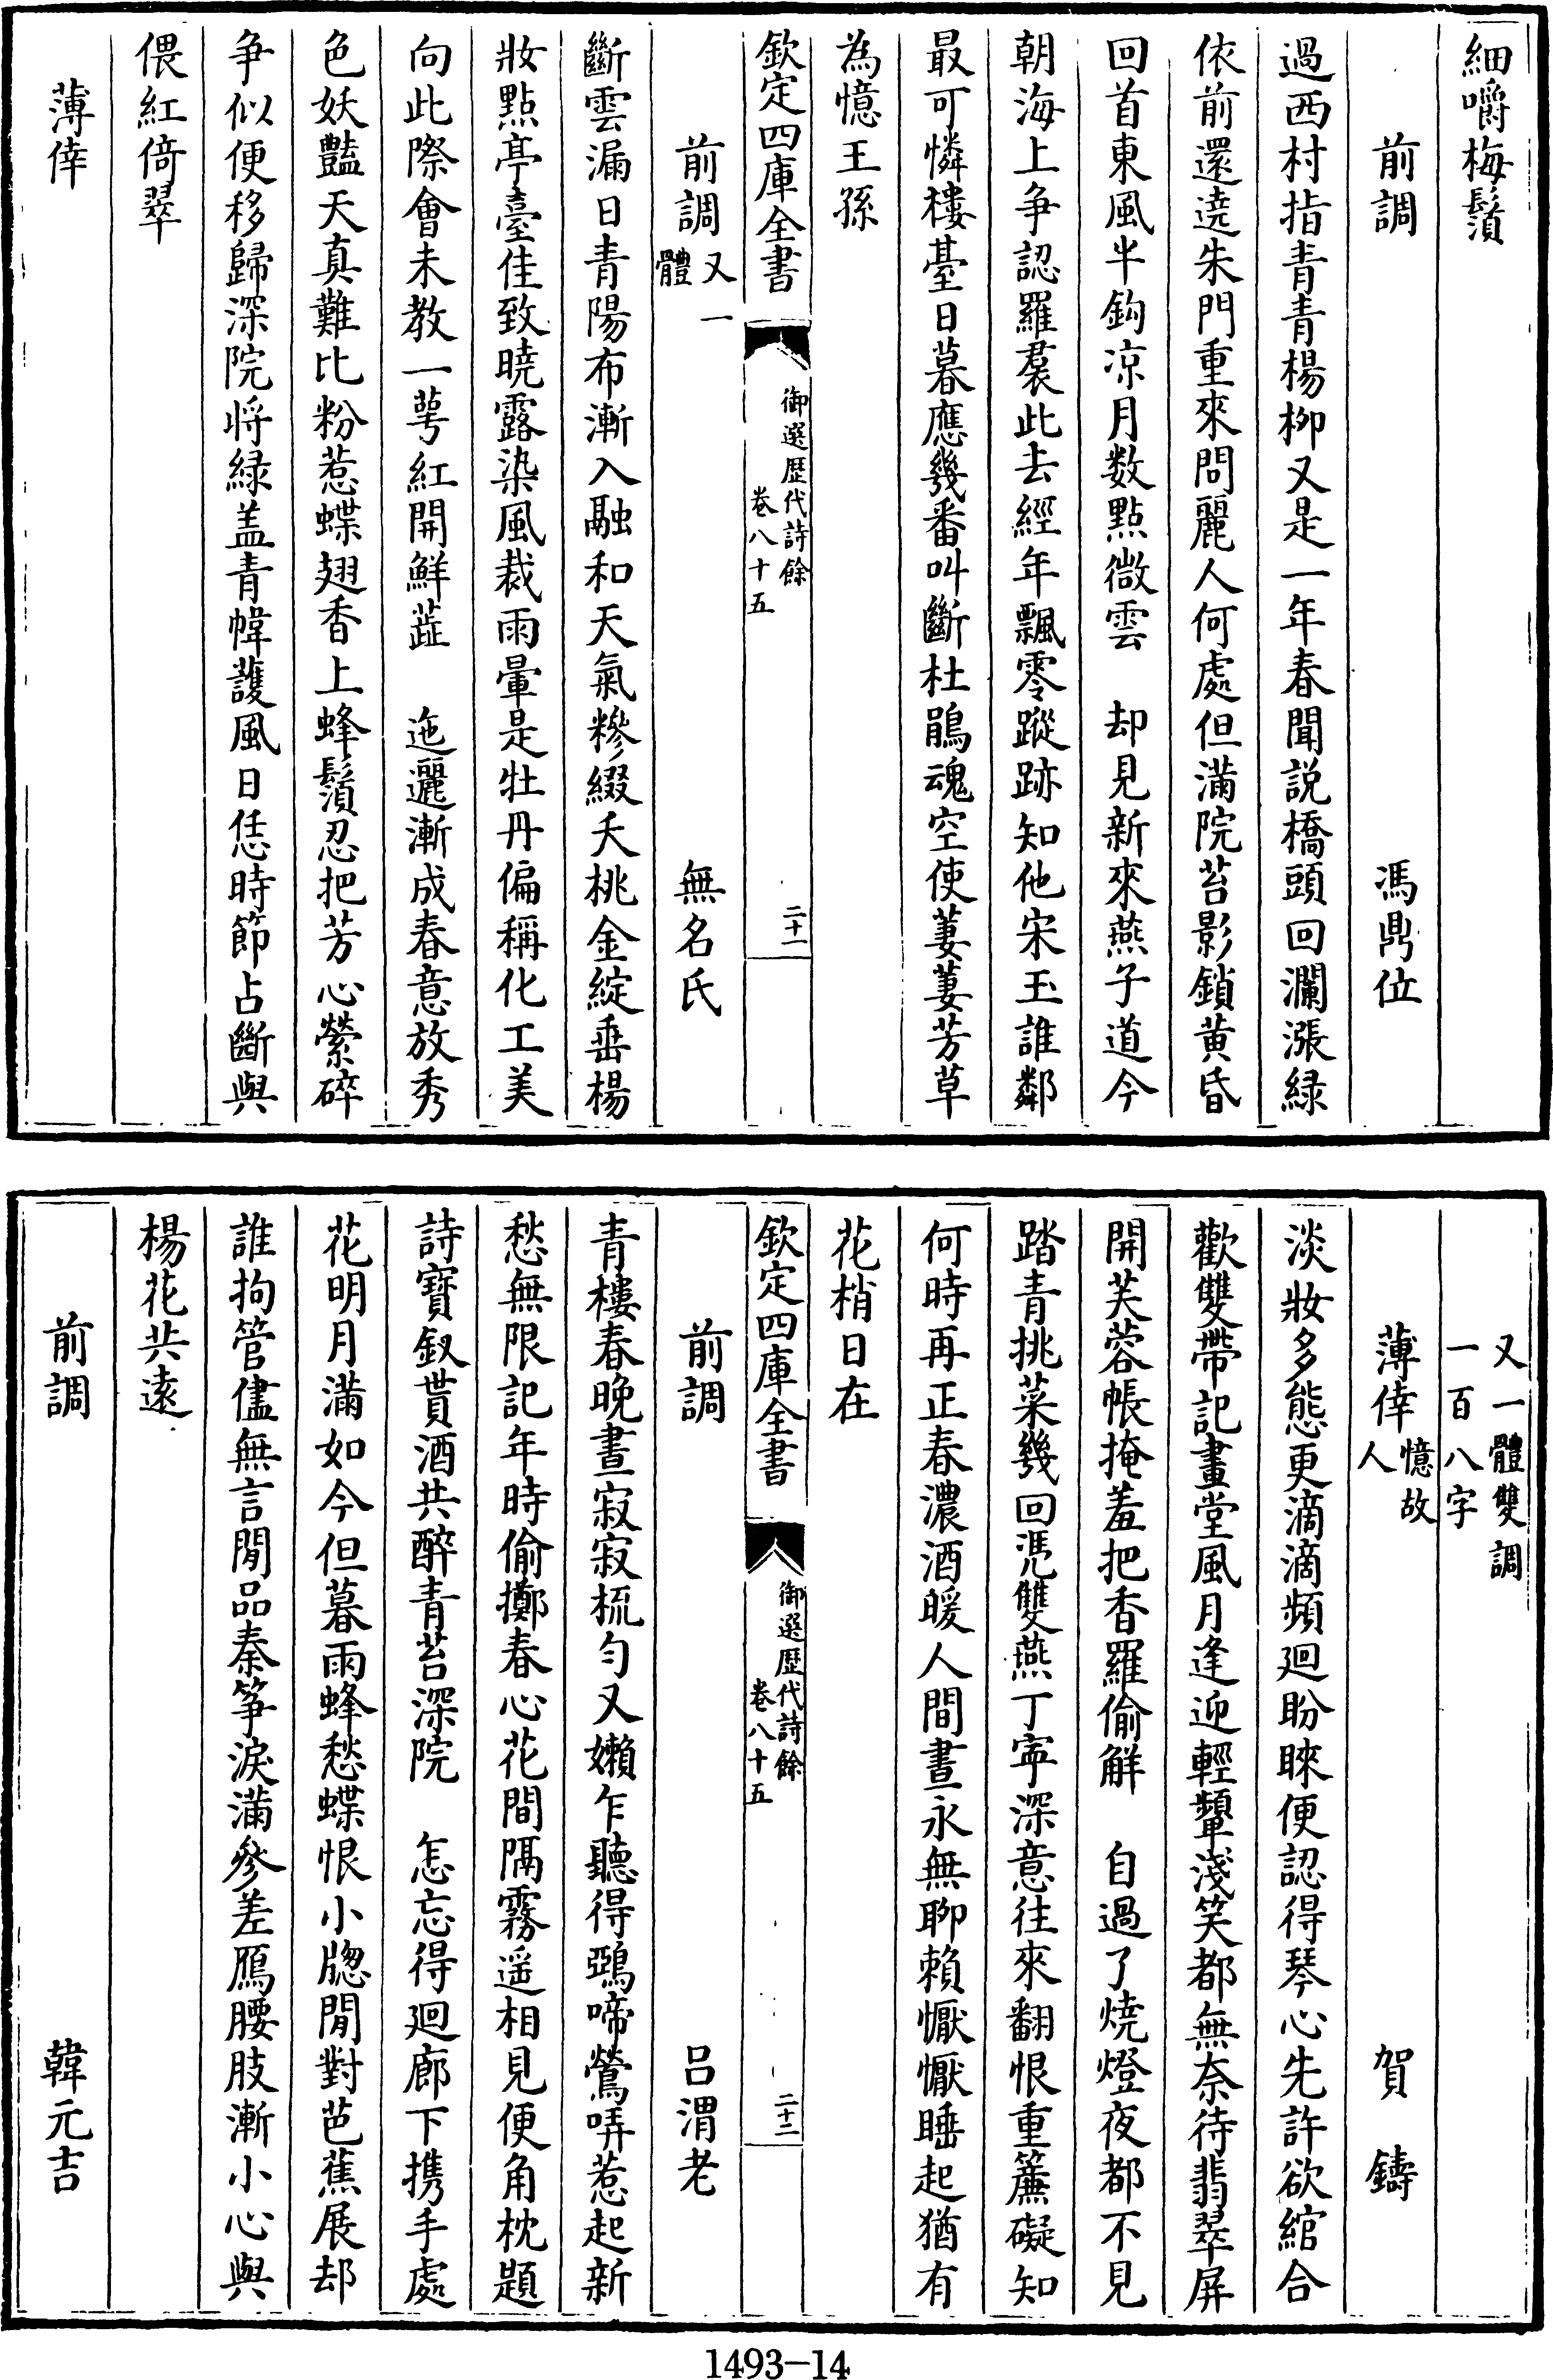 細嚼梅鬚
前調 馮鼎位
過西村指青青楊柳又是一年春聞説橋頭回瀾漲緑
依前還遶朱門重來問麗人何處但滿院苔影鎖黄昏
回首東風半鈎凉月数點微雲 却見新來燕子道今
朝海上争認羅裠此去經年飄零蹤跡知他宋玉誰鄰
最可憐樓䑓日暮應幾番叫斷杜鵑魂空使萋萋芳草
為憶王孫
欽定四庫全書 御選歴代詩餘 卷八十五 二十一
前調 又一體 無名氏
斷雲漏日青陽布漸入融和天氣糝綴夭桃金綻垂楊
妝點亭臺佳致曉露染風裁雨暈是牡丹偏稱化工美
向此際會未教一萼紅開鮮蘂 迤邐漸成春意放秀
色妖豔天真難比粉惹蝶翅香上蜂鬚忍把芳心縈碎
争似便移歸深院将緑盖青幃護風日恁時節占斷與
偎紅倚翠
薄倖
又一體雙調
一百八字
薄倖 憶故人 賀鑄
淡妝多態更滴滴頻廻盼睞便認得琴心先許欲綰合
歡雙帶記畫堂風月逢迎輕顰淺笑都無奈待翡翠屏
開芙蓉帳掩羞把香羅偷解 自過了燒燈夜都不見
踏青挑菜幾回凭雙燕丁寧深意往來翻恨重簾礙知
何時再正春濃酒暖人間晝永無聊賴懨懨睡起猶有
花梢日在
欽定四庫全書 御選歴代詩餘 卷八十五 二十二
前調 吕渭老
青樓春晚晝寂寂梳勻又嬾乍聽得鵶啼鶯哢惹起新
愁無限記年時偷擲春心花間隔霧遥相見便角枕題
詩寳釵貰酒共醉青苔深院 怎忘得廻廊下携手處
花明月滿如今但暮雨蜂愁蝶恨小牕閒對芭蕉展却
誰拘管儘無言閒品秦筝淚滿參差鴈腰肢漸小心與
楊花共遠
前調 韓元吉
1493-14